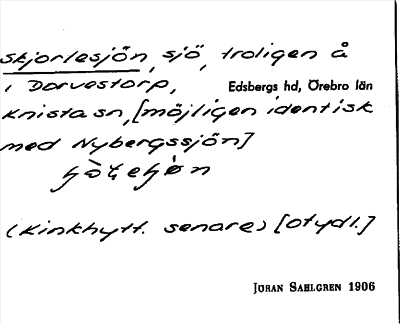 Skjortesjön, sjö, troligen å
i Dorvestorp, Edsbergs hd, Örebro län
Knista sn, [möjligen identisk
med Nybergssjön]
(Kinkhytt. senare) [otydl.]
JÖRAN SAHLGREN 1906